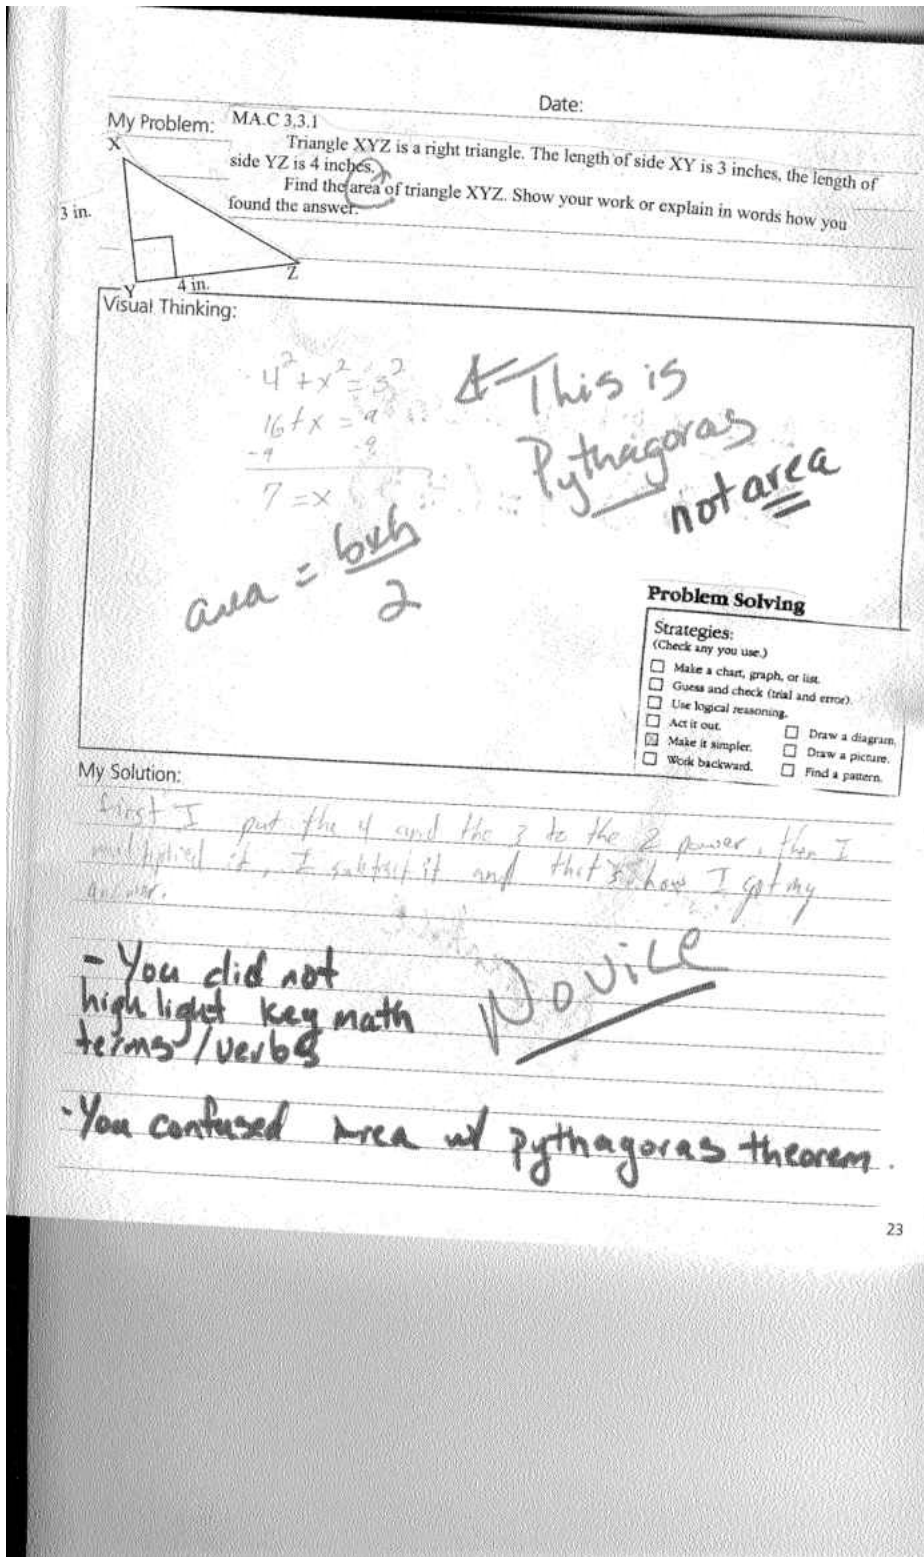 Date:
My Problem:
MA.C 3.3.1
Triangle XYZ is a right triangle. The length of side XY is 3 inches, the length of
side YZ is 4 inches.
Find the area of triangle XYZ. Show your work or explain in words how you
found the answer.
X
3 in.
Y
4 in.
Z
Visual Thinking:
4² + x² = 3²
16 + x = 9
-9 -9
7 = x
This is
Pythagoras
not area
area = bxh
2
Problem Solving
Strategies:
(Check any you use.)
Make a chart, graph, or list.
Guess and check (trial and error).
Use logical reasoning.
Act it out.
Make it simpler.
Work backward.
Draw a diagram.
Draw a picture.
Find a pattern.
My Solution:
first I put the 4 and the 3 to the 2 power, then I
multiplied it, I subtract it and that's how I got my
answer.
Novice
- You did not
high light key math
terms / verbs
- You confused Area w/ pythagoras theorem.
23